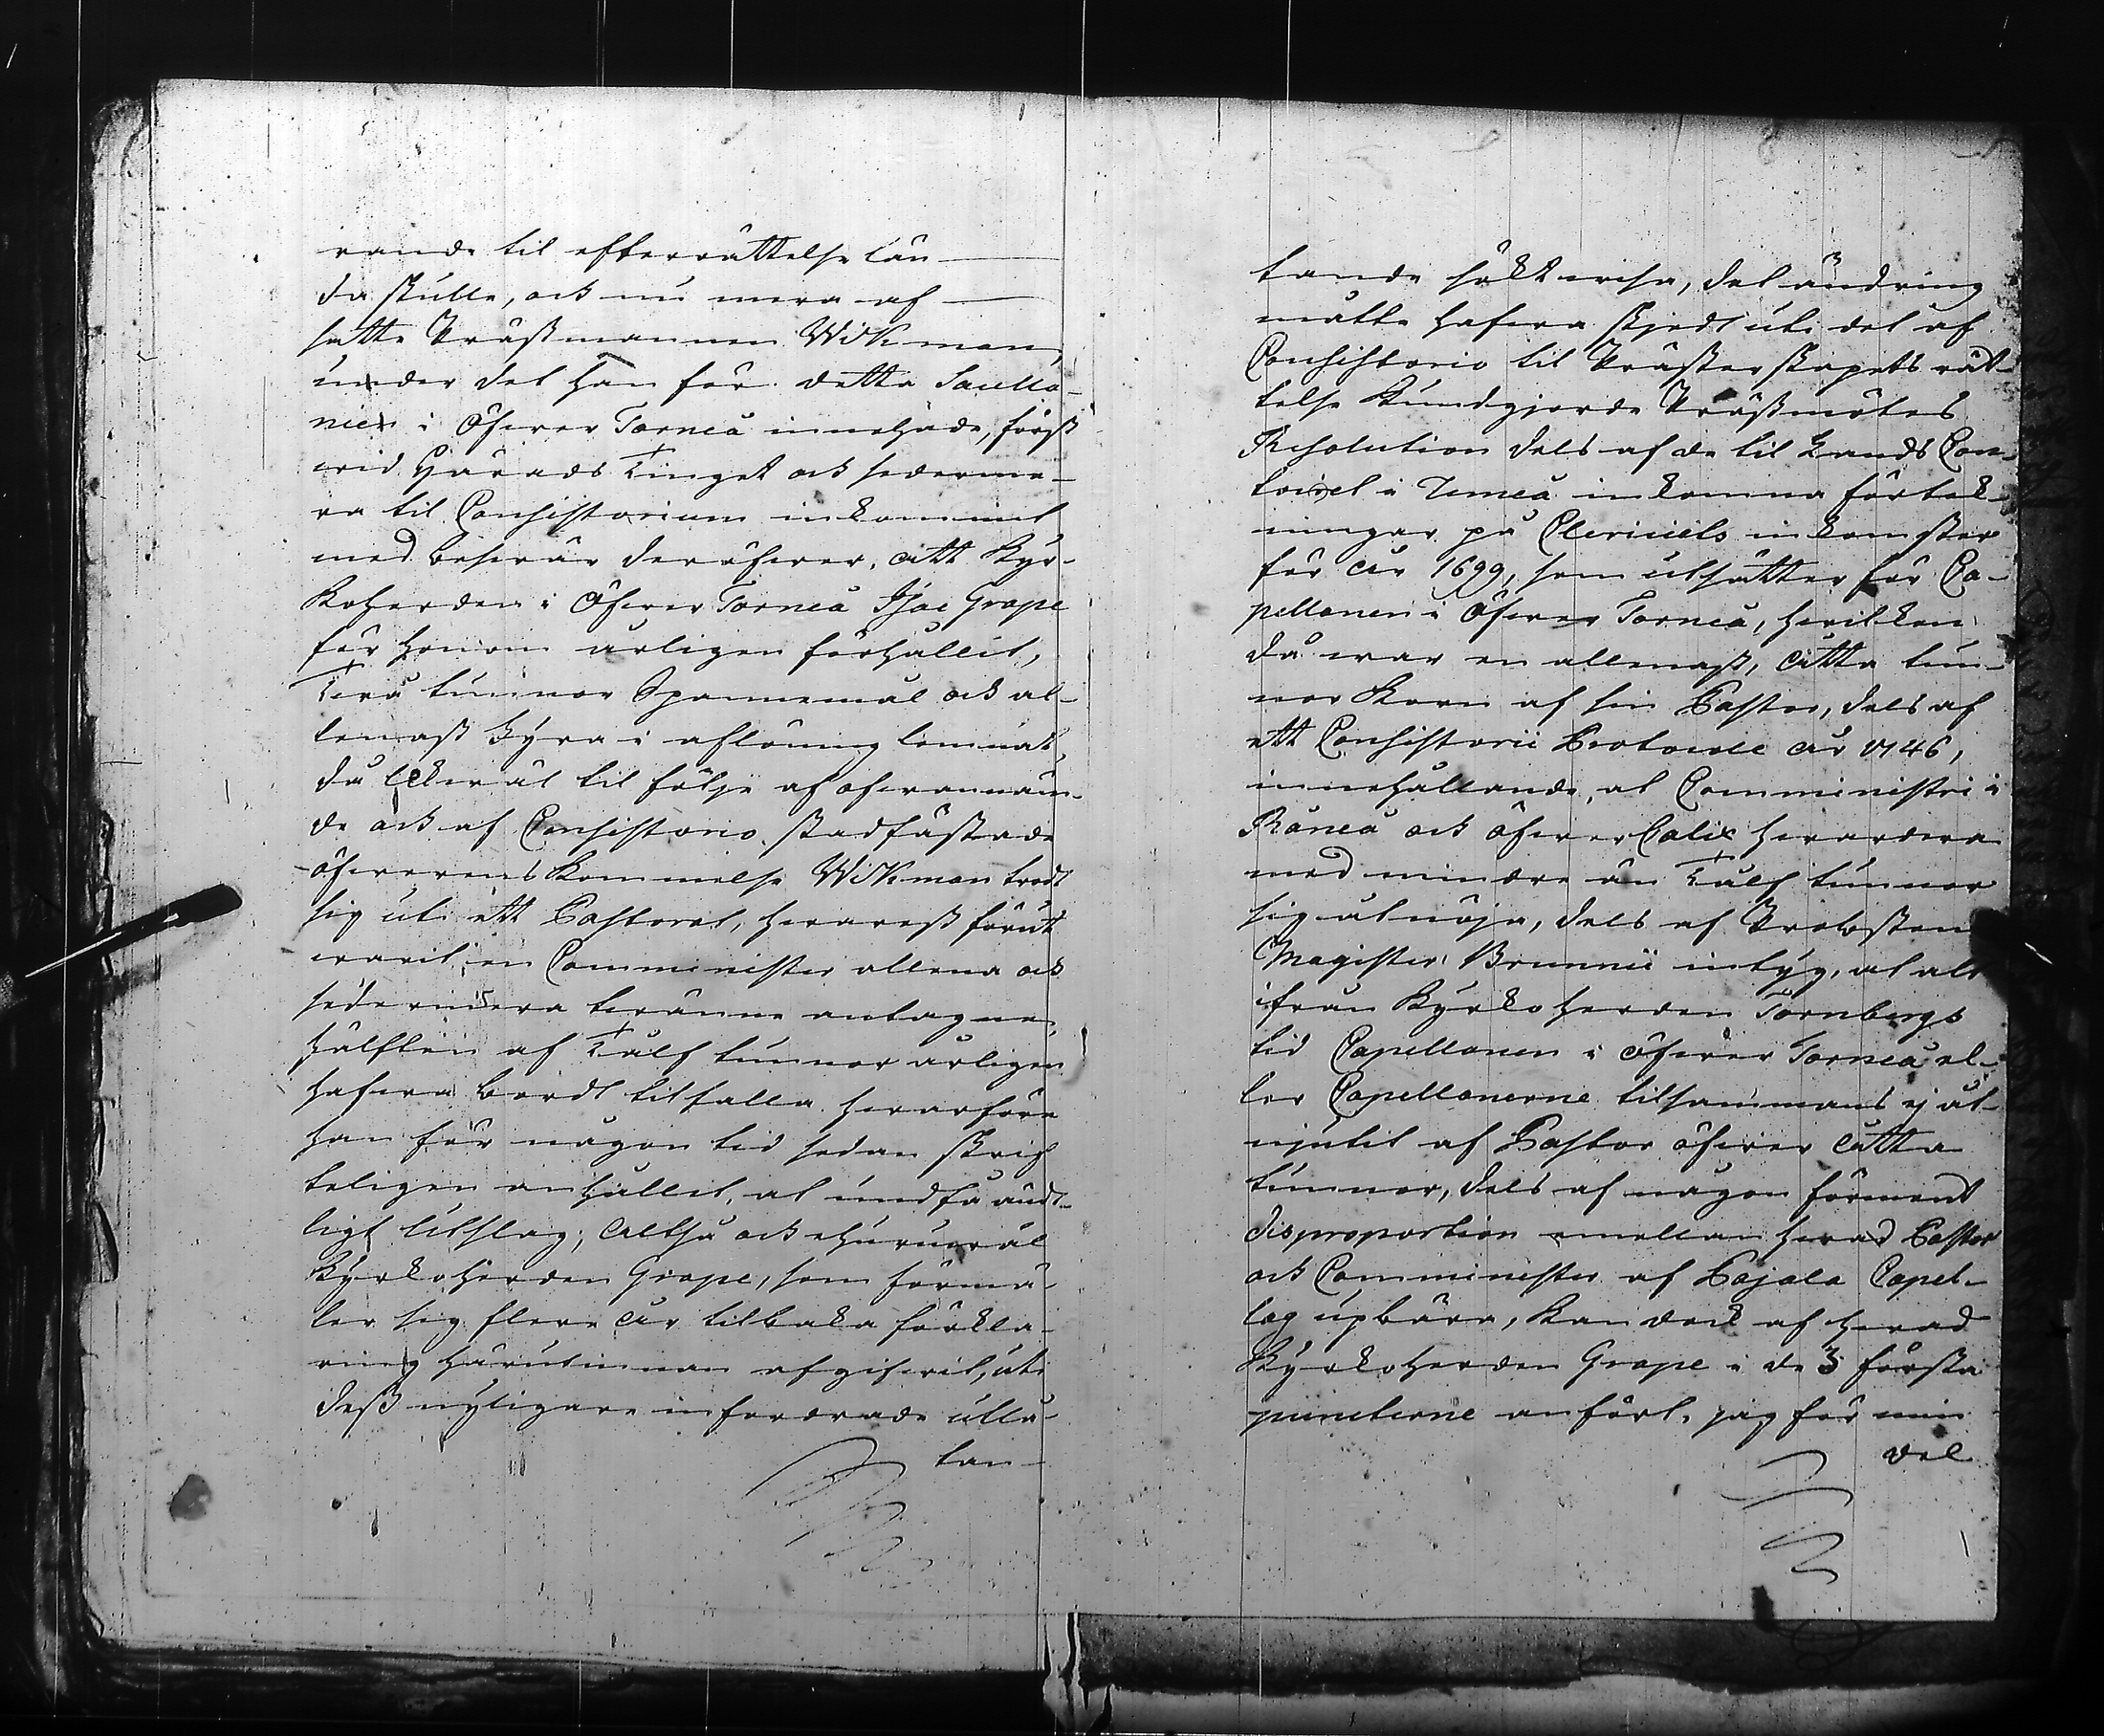 rande til efterrättelse län-
da skulle, ock nu mera af-
satte Prästmannen Wikman,
under det han för detta Sacella-
nien i Öfwer Torneå innehade, först
wid Härads Tinget ock sederme-
ra til Consistorium inkommit
med beswär deröfwer, att Kyr-
koherden i Öfwer Torneå Isac Grape
för honom årligen förhållit,
Twå tunnor Spannemål ock al-
lenast fyra i aflöning lemnat,
då likwäl til följe af ofwannäm-
de ock af Consistorio stadfästade
öfwerenskommelse Wikman trodt
sig uti ett Pastorat, hwarest förut
warit en Comminister allena ock
sedermera twänne antagne,
hälften af Tålf tunnor årligen
hafwa bordt tilfalla hwarföre
han för någon tid sedan skrif-
teligen anhållit, at undfå änd-
ligt utslag; Altså ock ehuruwäl
Kyrkoherden Grape, som förmä-
ler sig flere år tilbaka förkla-
ring härutinnan afgifwit, uti
dess nyligare infordrade utlå-
tan-
tande sökt wisa, det ändring
måtte hafwa skjedt uti det af
Consistorio til Prästerskapets rät-
telse kundgjorde Prästmötes
Resolution dels af de til Lands Con-
toiret i Umeå inkomna förtek-
ningar på Cleri­ciets inkomster
för år 1699, som utsätter för Ca-
pellanen i Öfwer Torneå, hwilken
då war en allenast, åtta tun-
nor Korn af sin Pastor, dels af
ett Consistorii Protocoll år 1746,
innehållande, at Comministri i
Råneå ock Öfwer Calix hwardera
med mindre än Tålf tunnor
sig åtnöja, dels af Probsten
Magister Brunnii intyg, at alt
ifrån Kyrkoherden Tornbergs
tid Capellanen i Öfwer Torneå el-
ler Capellanerne tilsammans ej åt-
njutit af Pastor öfwer åtta
tunnor, dels af någon förment
disproportion emellan hwad Pastor
ock Comminister af Pajala Capel-
lag upbära, kan dock af hwad
Kyrkoherden Grape i de 3 första
puncterne anfört, jag för min
del